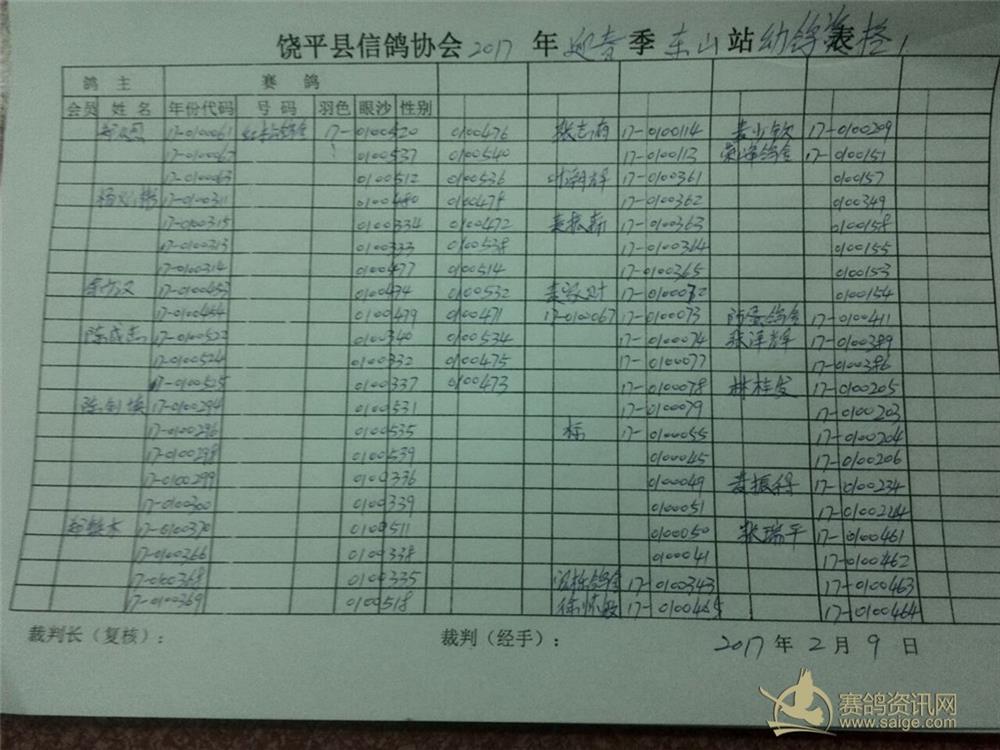 饶平县信鸽协会2017年迎春季东山站幼鸽 表
鸽主 赛鸽
会员 姓名 年份代码 号码 羽色 眼沙 性别
17-0100061 17-0100520 0100476 张志南 17-0100114 17-0100209
17-0100067 0100537 0100540 17-0100113 17-0100151
17-0100063 0100512 0100536 17-0100361 0100157
17-0100311 0100480 0100478 17-0100362 0100349
17-0100315 0100334 0100472 17-0100363 0100158
17-0100313 0100333 0100538 17-0100364 0100155
17-0100314 0100477 0100514 17-0100365 0100153
17-0100453 0100474 0100532 17-0100072 0100154
17-0100454 0100479 0100471 17-010067 17-0100073 17-0100411
17-0100522 0100340 0100534 17-0100074 张泽辉 17-0100389
17-0100524 0100332 0100475 17-0100077 17-0100386
17-0100525 0100337 0100473 17-0100078 林桂发 17-0100205
17-0100294 0100531 17-0100079 17-0100203
17-0100296 0100535 标 17-0100055 17-0100204
17-0100298 0100539 0100045 17-0100206
17-0100299 0100336 0100049 17-0100234
17-0100300 0100339 0100051 17-0100224
17-0100370 0100511 0100050 张瑞平 17-0100461
17-0100366 0100338 0100041 17-0100462
17-0100368 0100335 17-0100343 17-0100463
17-0100369 0100518 17-0100465 17-0100464
裁判长（复核）： 裁判（经手）： 2017年2月9日
赛鸽资讯网
www.saige.com